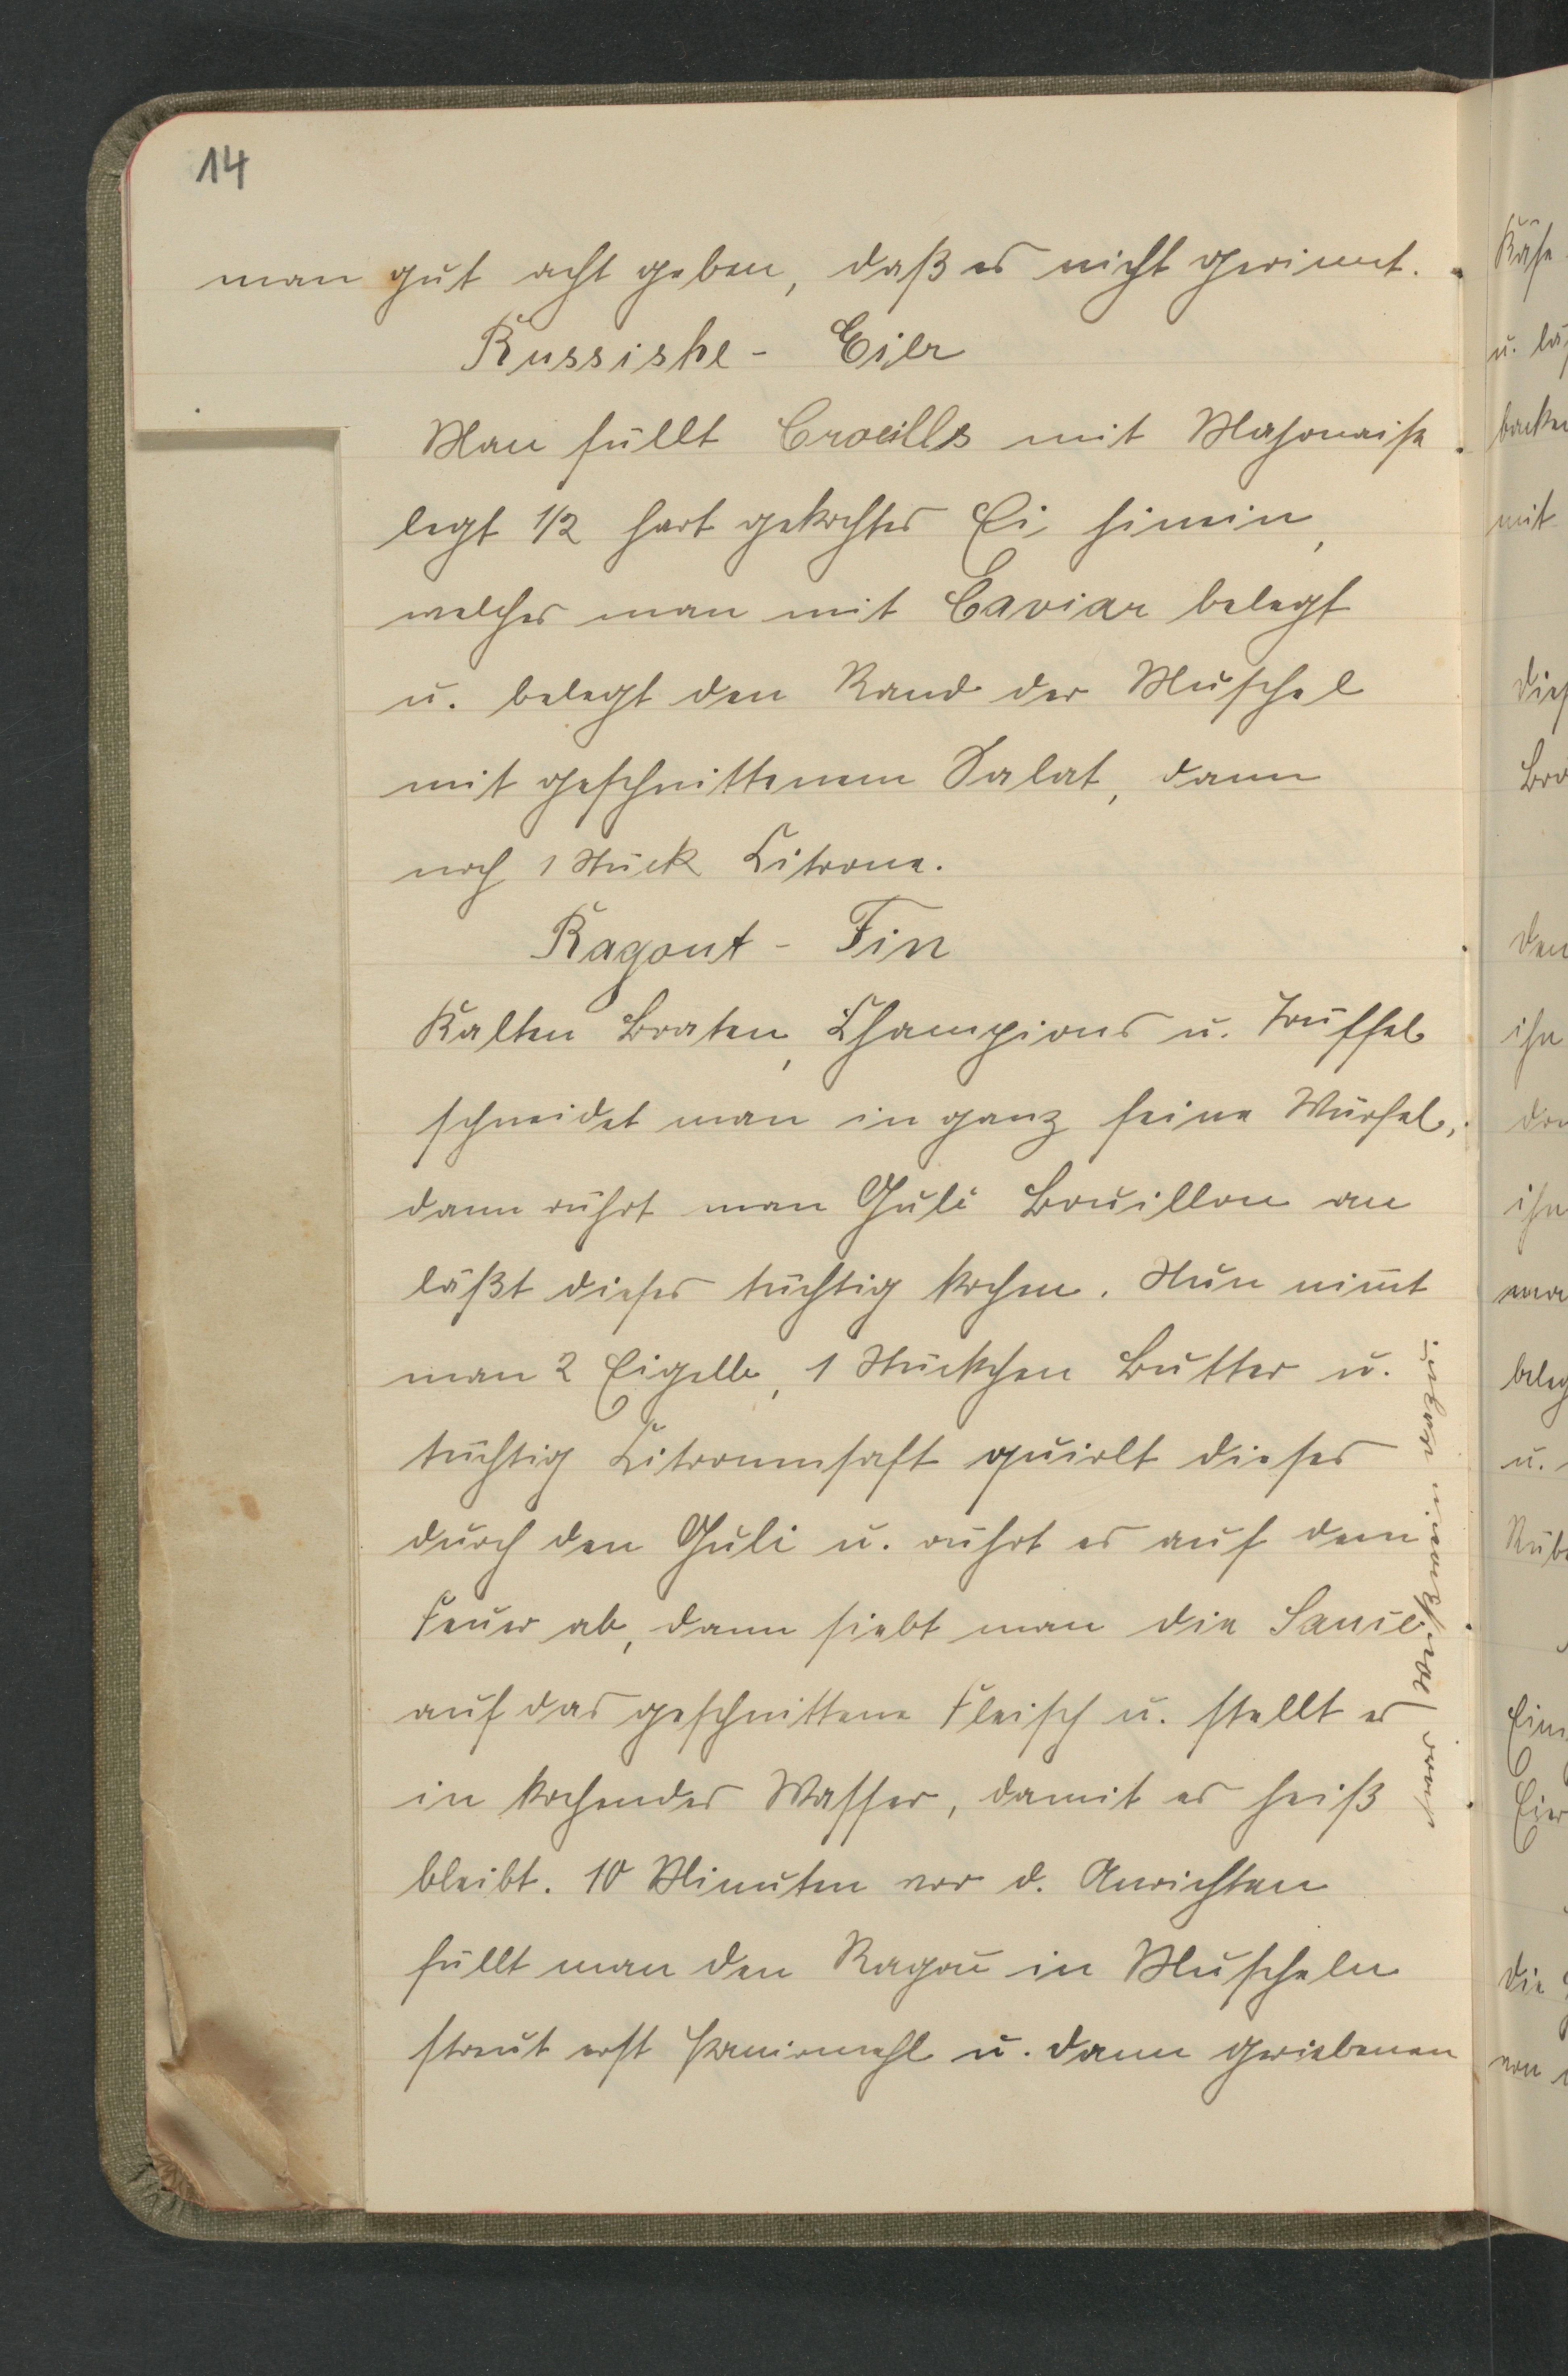 14
man gut acht geben, daß es nicht gerinnt.
Russishe - Eier
Man füllt Croeills mit Majonaise
legt 1/2 hart gekochtes Ei hinein,
welches man mit Caviar belegt
u. belegt den Rand der Muschel
mit geschnittenem Salat, dann
noch 1 Stück Citrone.
Ragout - Fin
Kalten Braten, Champions u. Trüffel
schneidet man in ganz feine Würfel,
dann rührt man Guli Bouillon an
läßt dieses tüchtig kochen. Nun nimt
man 2 Eigelb, 1 Stückchen Butter u.
tüchtig Citronensaft quirlt dieses
durch den Guli u. rührt es auf dem
Feuer ab, dann siebt man die Sauce
auf das geschnittene Fleisch u. stellt es
in kochendes Wasser, damit es heiß
bleibt. 10 Minuten vor d. Anrichten
füllt man den Ragou in Muscheln
streut erst Panirmehl u. dann geriebenen
Käse
u.
backen
mit
den
u.
Eier
die
von